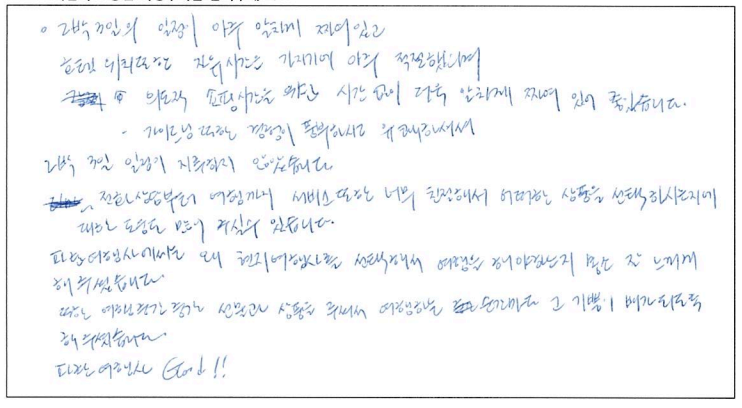 。2박 3일의 일정이 아주 알차게 짜여있고
호텔 위치또한 자유시간은 가지기에 아주 적절했으며
의도적 쇼핑시간을 위한 시간 없이 더욱 알차게 짜여 있어 좋았습니다.
- 가이드님 또한 경험이 풍부하시고 유쾌하셔서
2박 3일 일정이 지루하지 않았습니다.
전화상담부터 여행까지 서비스 또한 너무 친절해서 어떠한 상품을 선택하시는지에
대한 도움도 많이 주실수 있습니다.
파란여행사에서는 왜 현지여행사를 선택해서 여행을 해야하는지 몸소 잘 느끼게
해주셨습니다.
또한 여행중간 중간 선물과 상품을 주셔서 여행하는 순간마다 그 기쁨이 배가 되도록
해주셨습니다.
파란여행사 Good!!